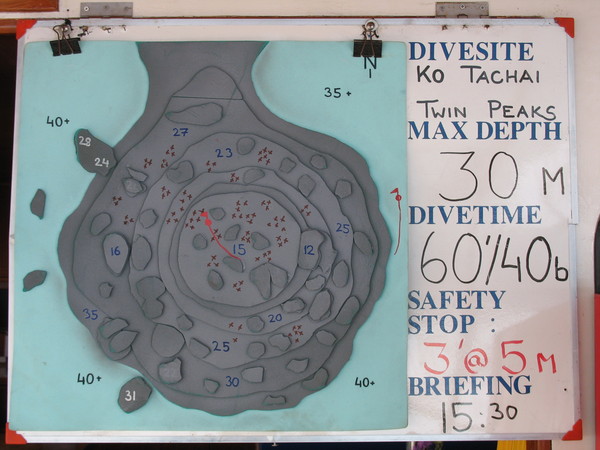 DIVESITE
KO TACHAI
TWIN PEAKS
MAX DEPTH
30 M
DIVETIME
60'/40b
SAFETY
STOP :
3'@5M
BRIEFING
15:30
N
35+
40+
28
24
27
23
25
16
15
12
35
20
25
30
40+
40+
31